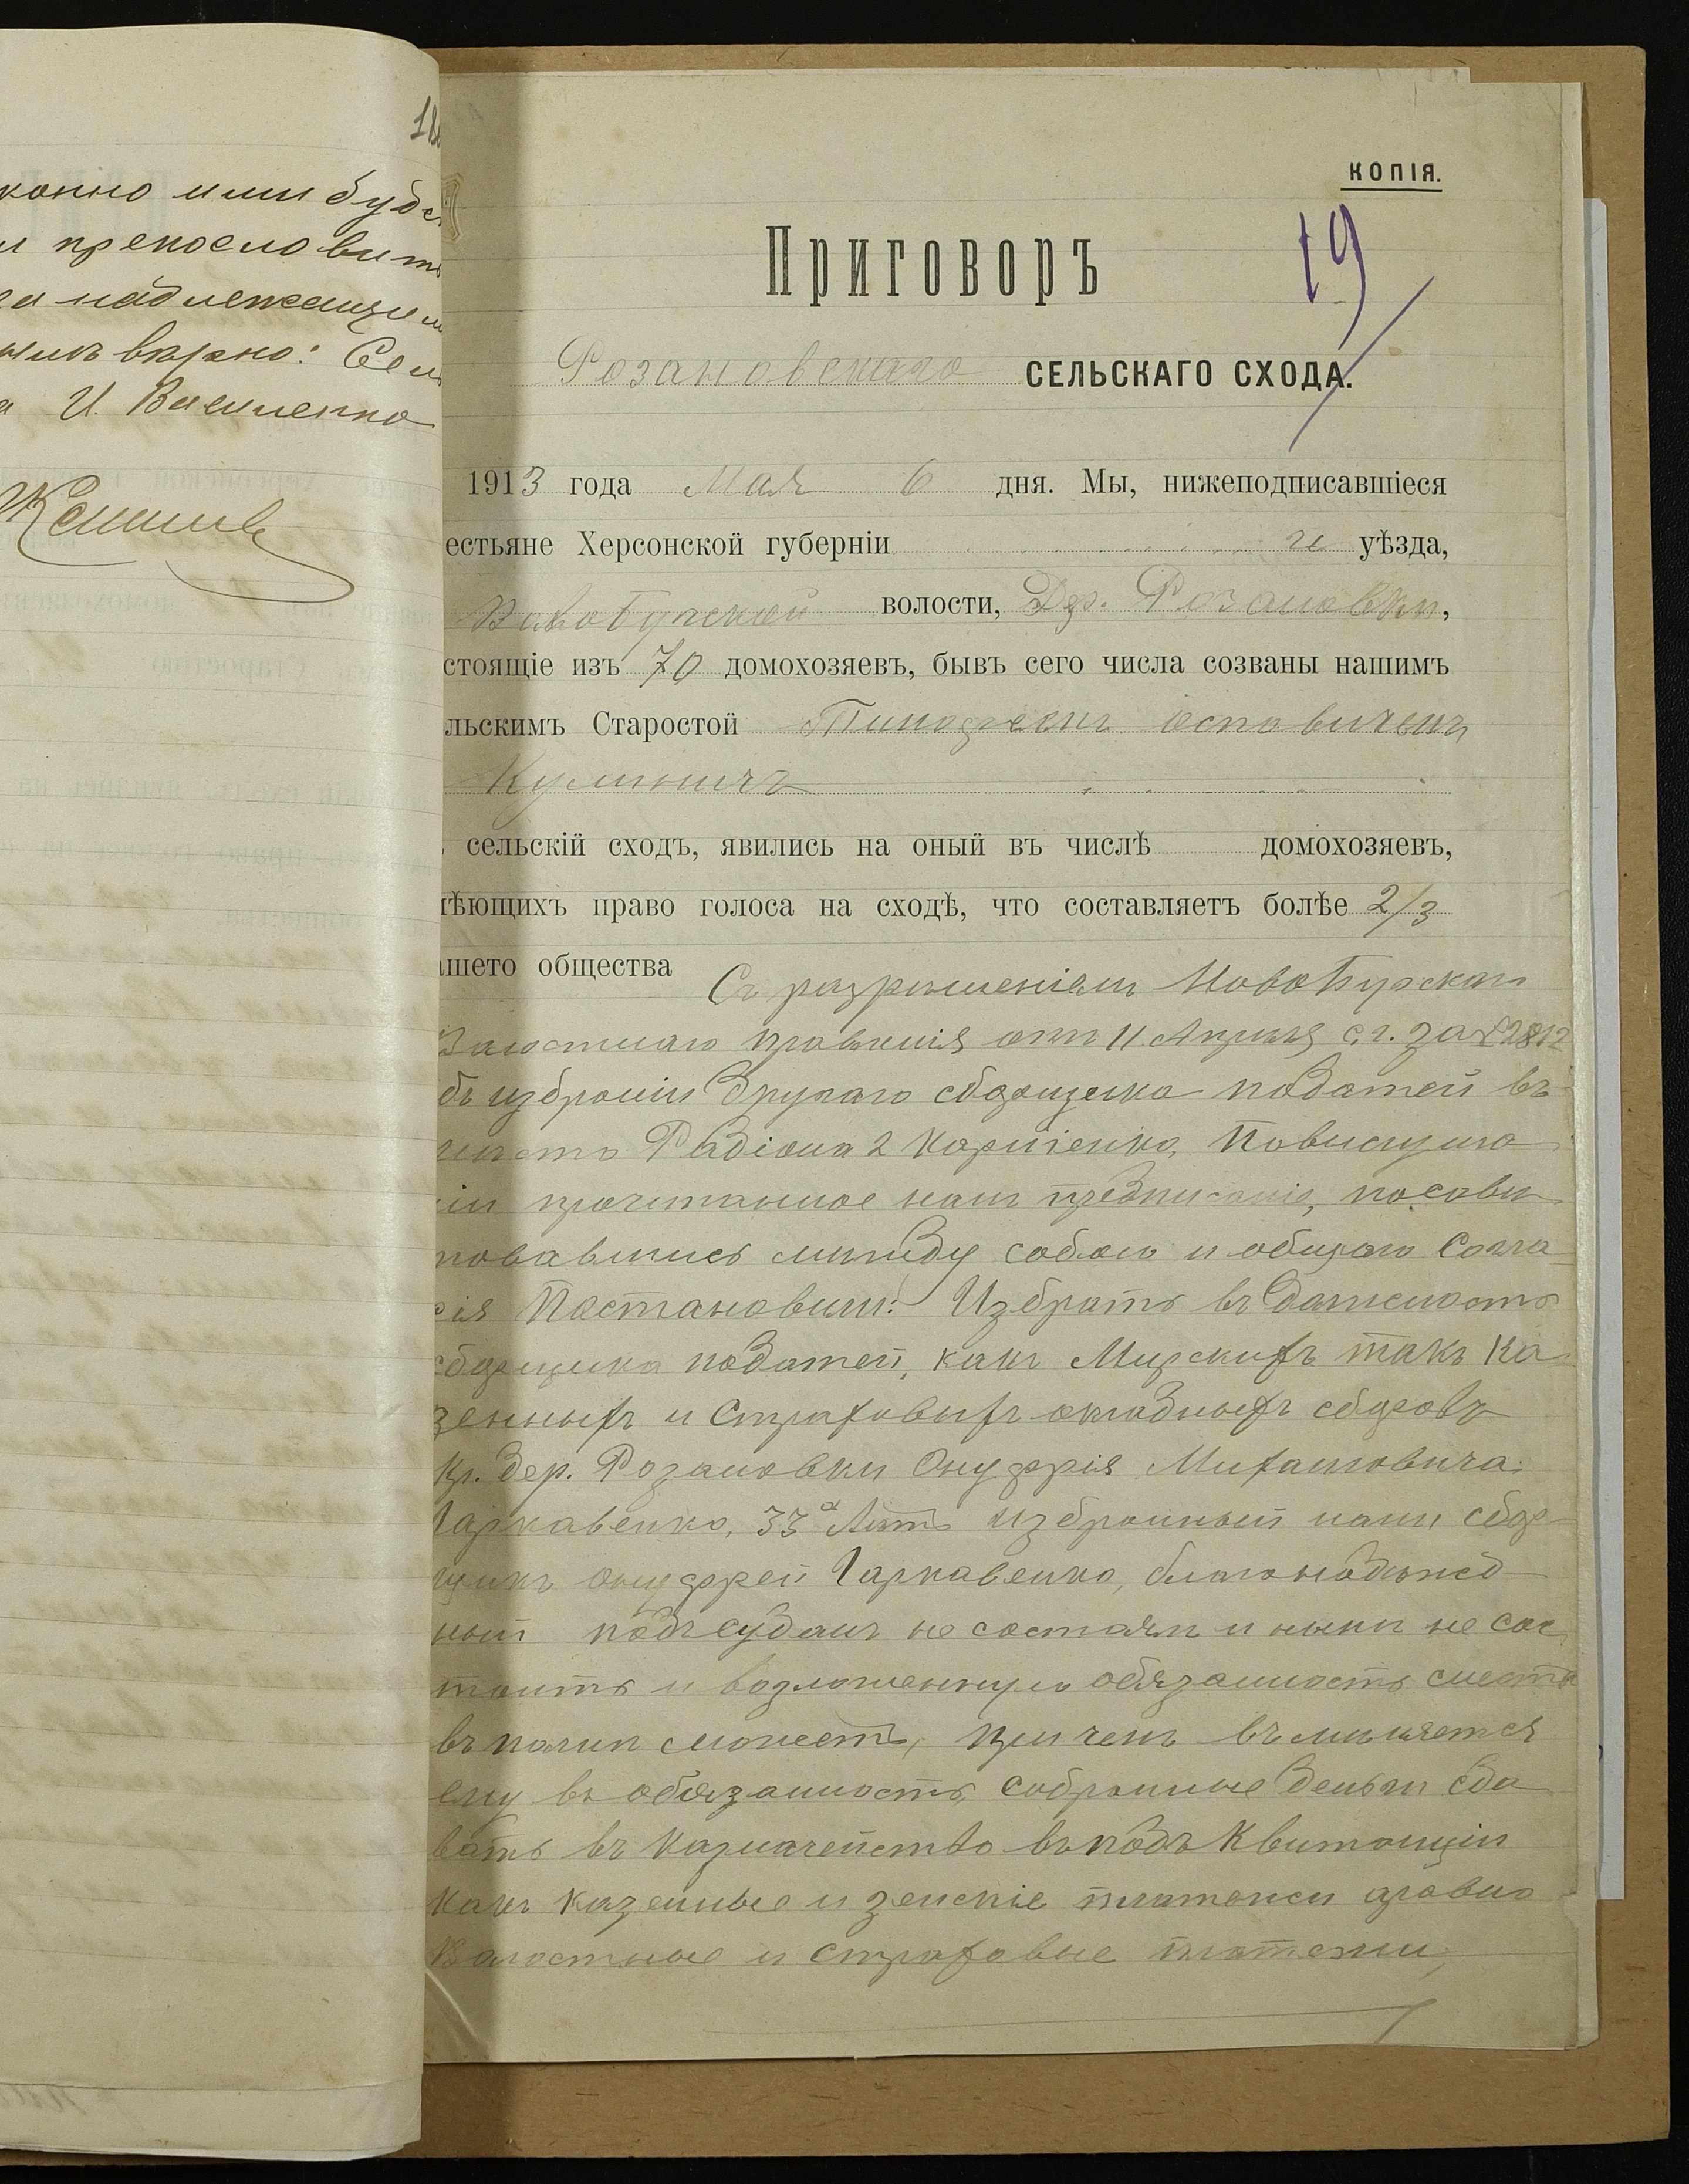 18
конно или будс
и прекословит
га надлежащим
ымъ вѣрно: Сел
а И. Василенко
КОПІЯ.
Приговоръ
19
Розановскаго СЕЛЬСКАГО СХОДА.
1913 года Мая 6 дня. Мы, нижеподписавшіеся
естьяне Херсонской губерніи уѣзда,
волости, Дер. Розановки,
стоящіе изъ 70 домохозяевъ, бывъ сего числа созваны нашимъ
льскимъ Старостой Тимофеемъ
сельскій сходъ, явились на оный въ числѣ домохозяевъ,
ѣющихъ право голоса на сходѣ, что составляетъ болѣе 2/3
ашего общества Съ разрешеніемъ Новобугскаго
Валостнаго правленія отъ 11 Апреля с. г. за № 2812
бъ избраніи другаго сборщика податей въ
место Радіона 2 Карпенко, Повыслуша
іи прочитанное намъ предписаніе, посовѣ
товавшись между собою и общаго Согла
сія Постановили: Избрать въ должность
сборщика податей, какъ Мирскихъ такъ Ка
зенныхъ и Страховыхъ окладныхъ сборовъ
кр. дер. Розановки Онуфрія Михайловича
Гаркавенко, 33х летъ избранный нами сбор
щикъ Онуфрей Гаркавенко, благонадежд
ный подъ судомъ не состоялъ и ныне не сос
тоитъ и возложенную обязанность снести
въ полне можетъ, при чемъ въменяется
ему въ обязанность собранные деньги сда
вать въ казначейство въ подъ Квитанціи
какъ казенные и земскіе платежи равно
Валостные и страховые платежи,